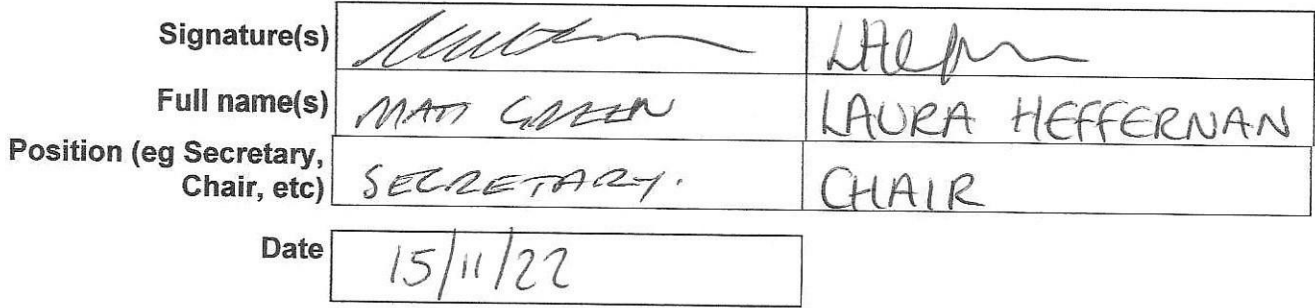 Signature(s)
Full name(s) MATT GREEN LAURA HEFFERNAN
Position (eg Secretary,
Chair, etc) SECRETARY. CHAIR
Date 15/11/22